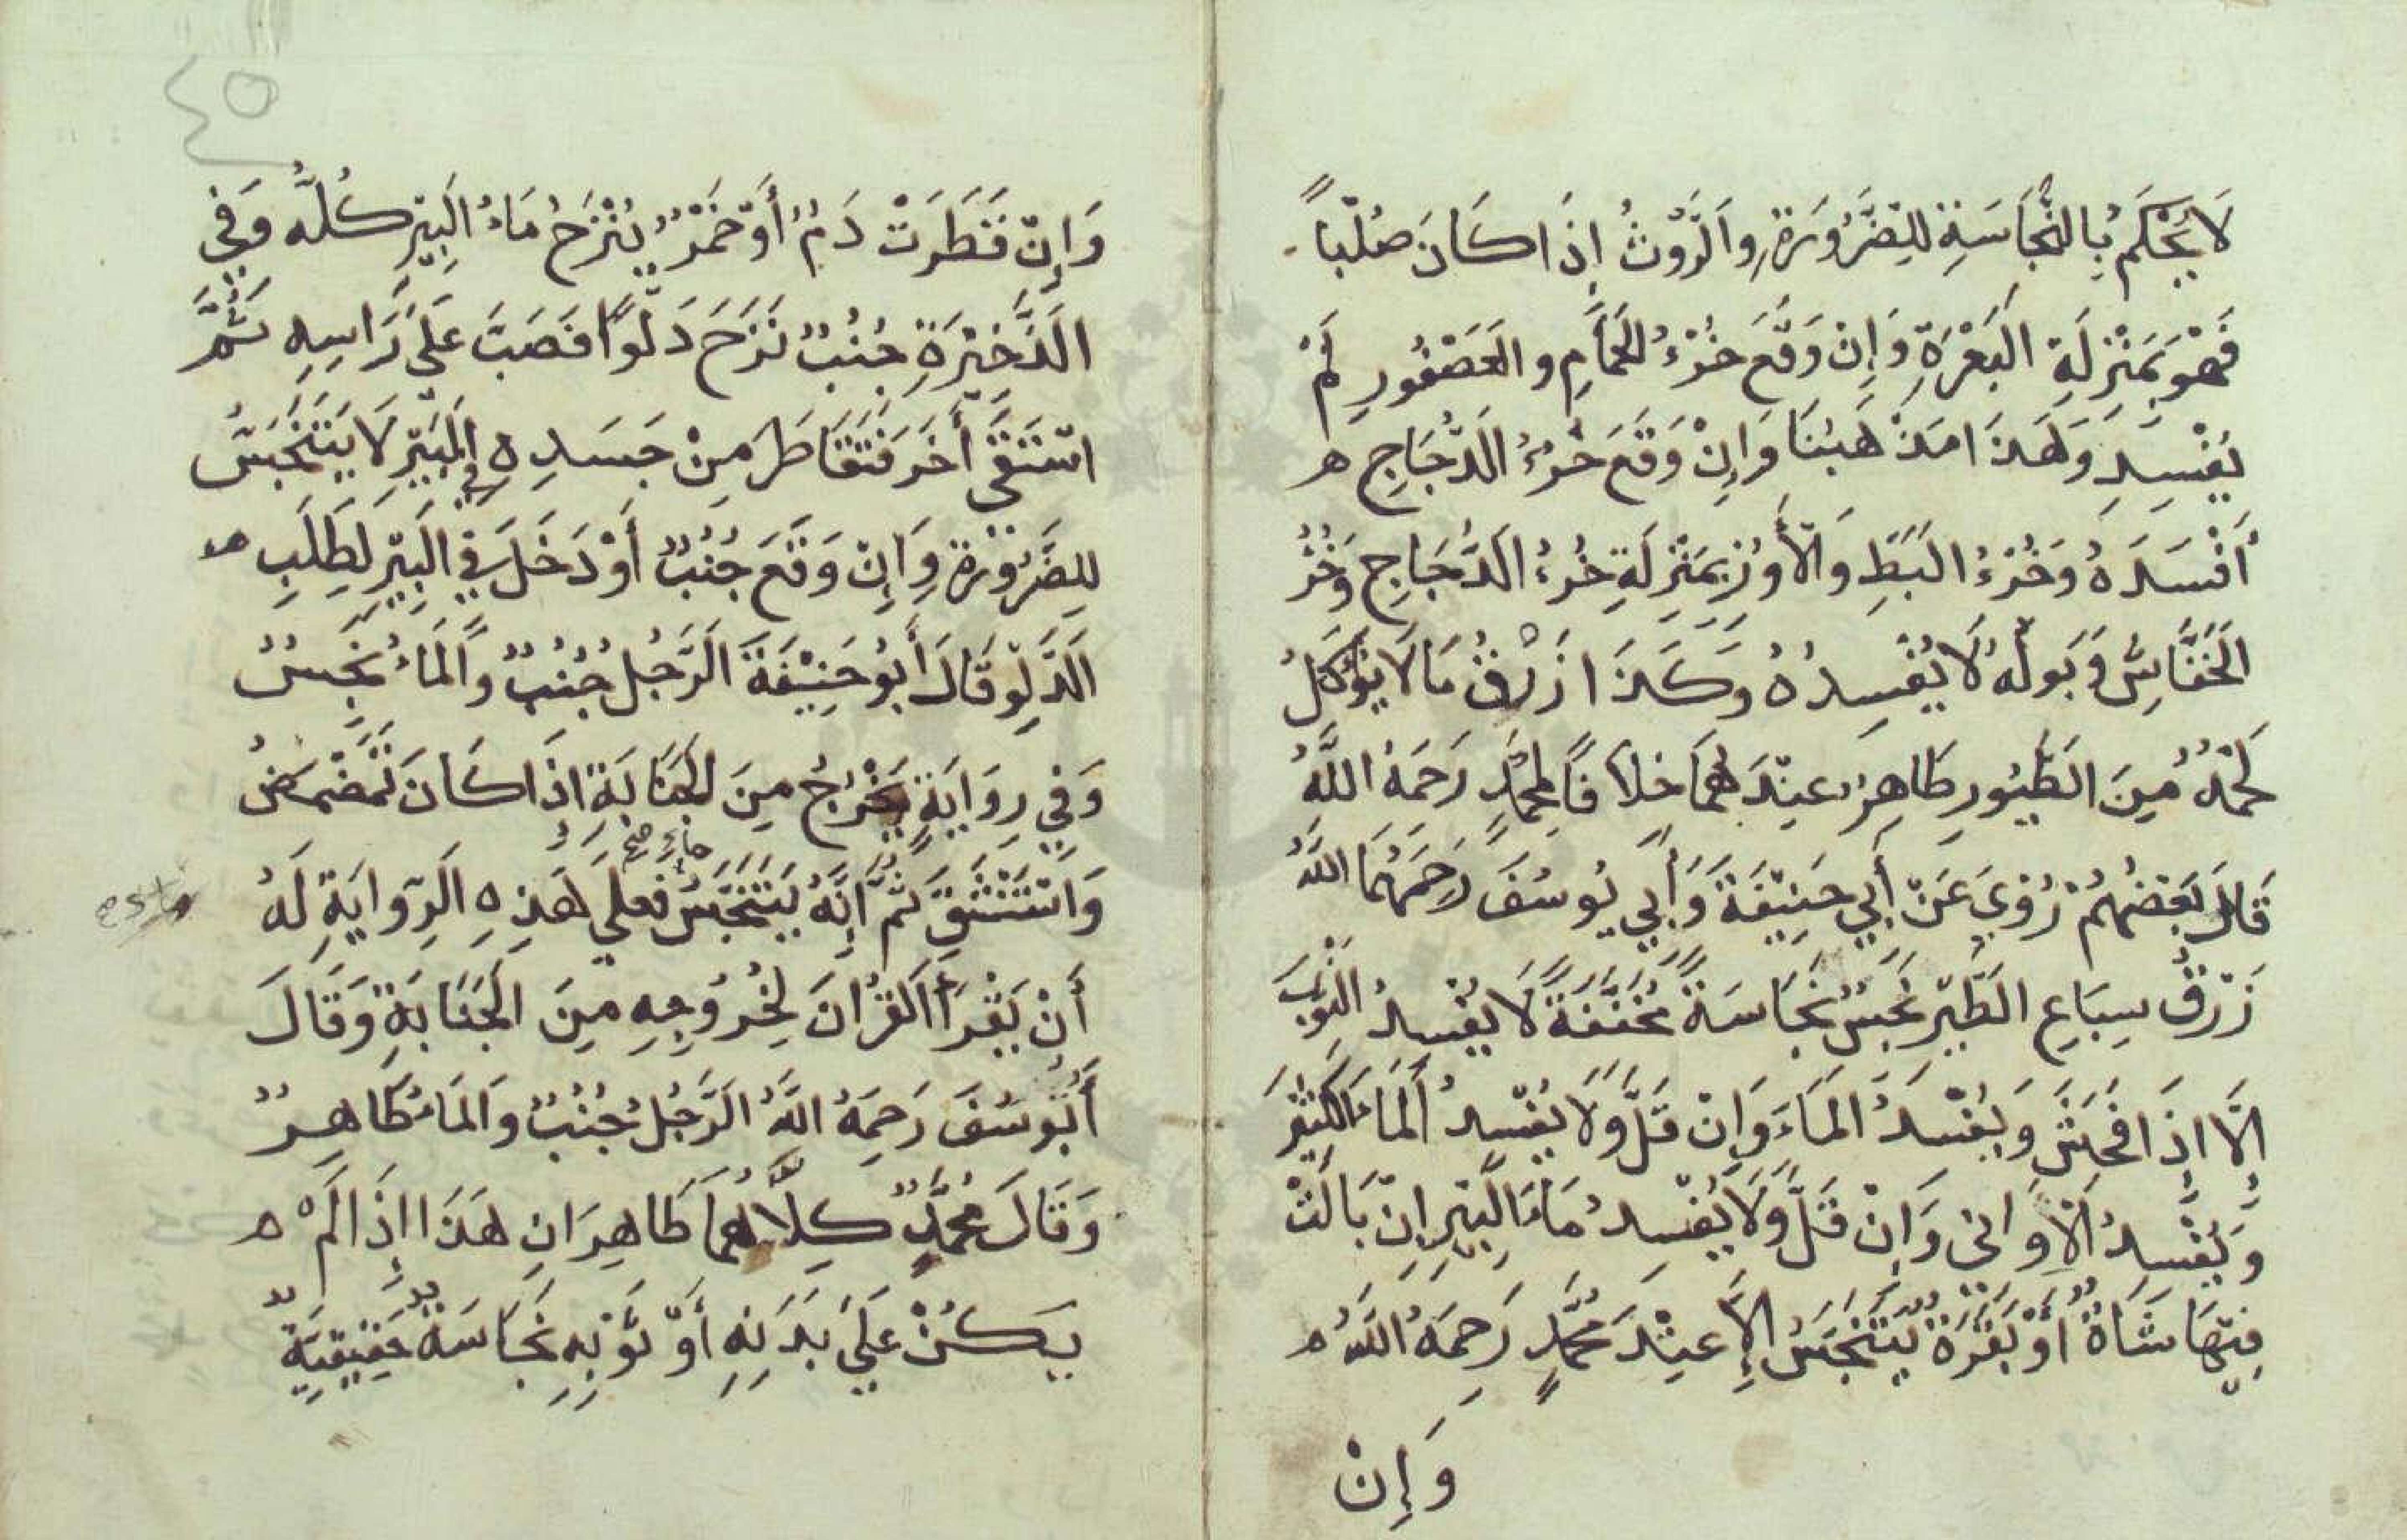 لَا يُحْكَمُ بِالنَّجَاسَةِ لِلضَّرُورَةِ وَالرَّوْثُ إِذَا كَانَ صُلْبًا
فَهُوَ بِمَنْزِلَةِ الْبَعْرَةِ وَإِنْ وَقَعَ خُرْءُ الْحَمَامِ وَالْعَصْفُورِ لَمْ
يُفْسِدِ وَهَذَا مَذْهَبُنَا وَإِنْ وَقَعَ خُرْءُ الدَّجَاجِ ه
أَفْسَدَهُ وَخُرْءُ الْبَطِّ وَالْأَوِزِ بِمَنْزِلَةِ خُرْءِ الدَّجَاجِ وَخُرْءُ
الْخَفَّاشِ وَبَولُهُ لَا يُفْسِدُهُ وَكَذَا زَرْقُ مَا لَا يُؤْكَلُ
لَحْمُهُ مِنَ الطُّيُورِ طَاهِرٌ عِنْدَهُمَا خِلَافًا لِمُحَمَّدٍ رَحِمَهُ اللَّهُ
قَالَ بَعْضُهُمْ رُوِيَ عَنْ أَبِي حَنِيفَةَ وَأَبِي يُوسُفَ رَحِمَهُمَا اللَّهُ
زَرْقُ سِبَاعِ الطَّيْرِ نَجِسٌ نَجَاسَةً مُخَفَّفَةً لَا يُفْسِدُ الثَّوْبَ
إِلَّا إِذَا فَحُشَ وَيُفْسِدُ الْمَاءَ وَإِنْ قَلَّ وَلَا يُفْسِدُ الْمَاءَ الْكَثِيرَ
وَيُفْسِدُ الْأَوَانِي وَإِنْ قَلَّ وَلَا يُفْسِدُ مَاءَ الْبِئْرِ إِنْ بَالَتْ
فِيهَا شَاةٌ أَوْ بَقَرَةٌ يَتَنَجَّسُ إِلَّا عِنْدَ مُحَمَّدٍ رَحِمَهُ اللَّهُ ه
وَإِنْ
٤٥
وَإِنْ قَطَرَتْ دَمٌ أَوْ خَمْرٌ يُنْزَحُ مَاءُ الْبِيرِ كُلُّهُ وَفِي
الذَّخِيرَةِ جُنُبٌ نَزَحَ دَلْوًا فَصَبَّ عَلَى رَاسِهِ ثُمَّ
اسْتَقَى أَخَرَ فَتَقَاطَرَ مِنْ جَسَدِهِ فِي الْبِيرِ لَا يَتَنَجَّسُ
لِلضَّرُورَةِ وَإِنْ وَقَعَ جُنُبٌ أَوْ دَخَلَ فِي الْبِيرِ لِطَلَبِ ه
الدَّلْوِ قَالَ أَبُو حَنِيفَةَ الرَّجُلُ جُنُبٌ وَالْمَاءُ نَجِسٌ
وَفِي رِوَايَةٍ يَخْرُجُ مِنَ الْجَنَابَةِ إِذَا كَانَ تَمَضْمَضَ
وَاسْتَنْشَقَ ثُمَّ إِنَّهُ يَتَنَجَّسُ فَعَلَى هَذِهِ الرِّوَايَةِ لَهُ
أَنْ يَقْرَأَ الْقُرْانَ لِخُرُوجِهِ مِنَ الْجَنَابَةِ وَقَالَ
أَبُو يُوسُفَ رَحِمَهُ اللَّهُ الرَّجُلُ جُنُبٌ وَالْمَاءُ طَاهِرٌ
وَقَالَ مُحَمَّدٌ كِلَاهُمَا طَاهِرَانِ هَذَا إِذَا لَمْ ه
يَكُنْ عَلَى بَدَنِهِ أَوْ ثَوْبِهِ نَجَاسَةٌ حَقِيقِيَّةٌ